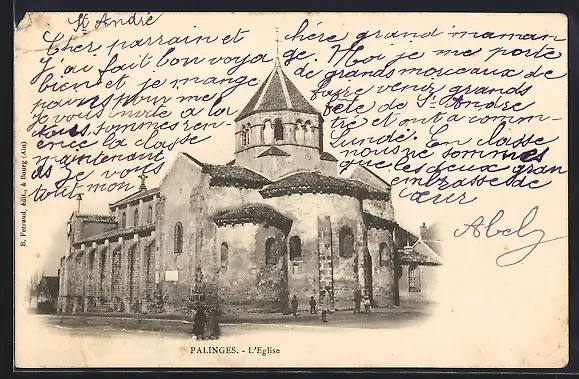 St André
Cher parrain et chère grand maman
J'ai fait bon voyage. Moi je me porte
bien et je mange de grands morceaux de
pour me faire venir grands
Je vous invite à la fête de St André
tous sommes ren- tré et on a commen-
cé la classe lundi. En classe
maintenant nous ne sommes
que les deux gran
das je vous embrasse de
tout mon cœur
Abel
B. Ferrand, édit., à Bourg (Ain)
PALINGES. - L'Eglise